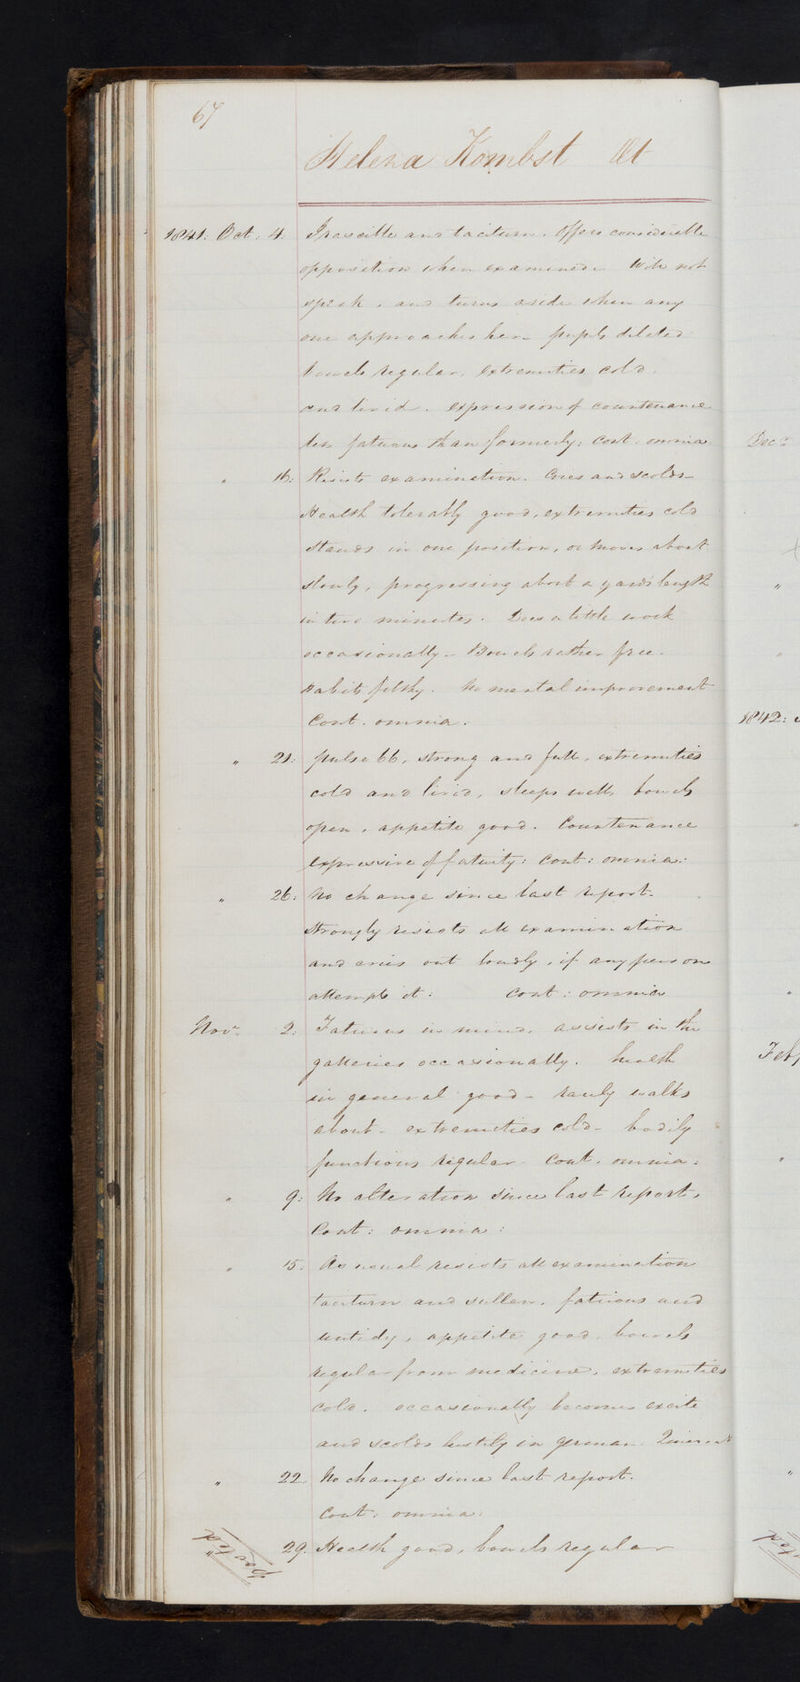 67
Helena Kombst Æt
1841. Oct: 4. Irascible and taciturn. Offers considerable
opposition when examined. Will not
speak, and turns aside when any
one approaches her. pupils dilated
bowels regular, extremities cold
and livid. expression of countenance
less fatuous than formerly: Cont. omnia
" 16: Resists examination. Cries and scolds
Health tolerably good, extremities cold
stands in one position, or moves about
slowly, progressing about a yards length
in two minutes. Does a little work
occasionally - Bowels rather free.
Habits filthy. No mental improvement
Cont. omnia.
" 21: pulse 66, strong and full, extremities
cold and livid, sleeps well, bowels
open, appetite good. Countenance
expressive of fatuity: Cont: omnia:
" 26: No change since last report.
Strongly resists all examination
and cries out loudly, if any person
attempts it: Cont: omnia
Novr 2: Fatuous in mind. assists in the
galleries occasionally. health
in general good - rarely walks
about - extremities cold - bodily
functions regular Cont. omnia:
" 9: No alteration since last report.
Cont: omnia:
" 15: As usual resists all examination
taciturn and sullen, fatuous and
untidy, appetite good. bowels
regular from medicine, extremities
cold. occasionally becomes excite
and scolds lustily in german
" 22 No change since last report.
Cont. omnia.
" 29. Health good, bowels regular
Decr
"
1842:
Feby